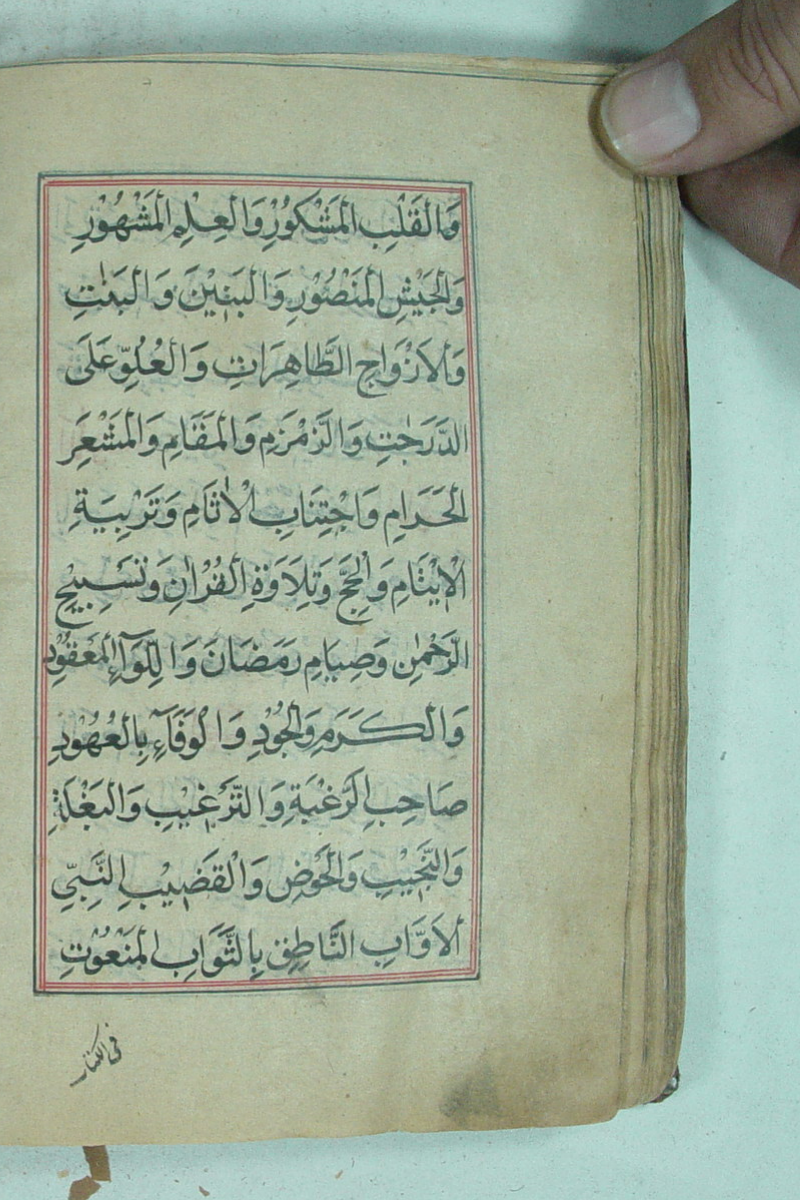 وَالْقَلْبِ الْمَشْكُوْرِ وَالْعِلْمِ الْمَشْهُوْرِ
وَالْجَيْشِ الْمَنْصُوْرِ وَالْبَنِيْنَ وَالْبَنٰتِ
وَالْاَزْوَاجِ الطَّاهِرَاتِ وَالْعُلُوِّ عَلَى
الدَّرَجٰتِ وَالزَّمْزَمِ وَالْمَقَامِ وَالْمَشْعَرِ
الْحَرَامِ وَاجْتِنَابِ الْاٰثَامِ وَتَرْبِيَةِ
الْاَيْتَامِ وَالْحَجِّ وَتِلَاوَةِ الْقُرْاٰنِ وَتَسْبِيْحِ
الرَّحْمٰنِ وَصِيَامِ رَمَضَانَ وَاللِّوَآءِ الْمَعْقُوْدِ
وَالْكَرَمِ وَالْجُوْدِ وَالْوَفَآءِ بِالْعُهُوْدِ
صَاحِبِ الرَّغْبَةِ وَالتَّرْغِيْبِ وَالْبَغْلَةِ
وَالنَّجِيْبِ وَالْحَوْضِ وَالْقَضِيْبِ النَّبِيِّ
الْاَوَّابِ النَّاطِقِ بِالثَّوَابِ الْمَنْعُوْتِ
فى الكتاب